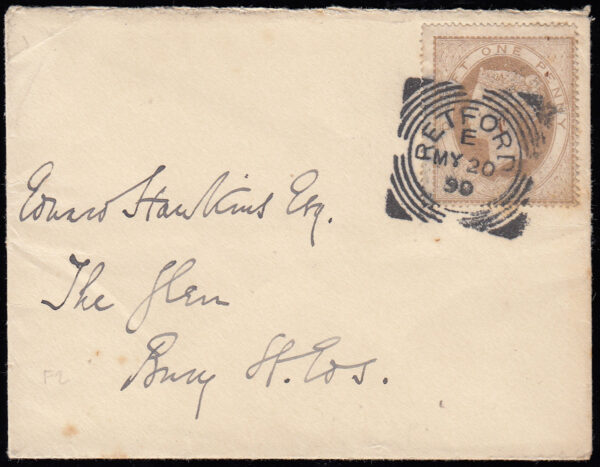 ET ONE PENNY
RETFORD
E
MY 20
90
Edward Hawkins Esq.
The Glen
Bury St. Eds.
F2